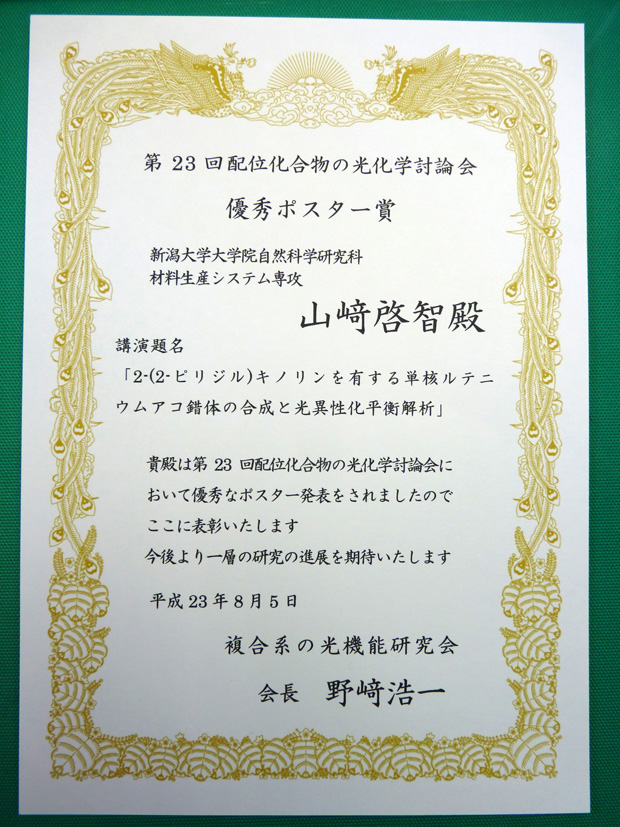 第 23 回配位化合物の光化学討論会
優秀ポスター賞
新潟大学大学院自然科学研究科
材料生産システム専攻
山﨑啓智殿
講演題名
「2-(2-ピリジル)キノリンを有する単核ルテニ
ウムアコ錯体の合成と光異性化平衡解析」
貴殿は第 23 回配位化合物の光化学討論会に
おいて優秀なポスター発表をされましたので
ここに表彰いたします
今後より一層の研究の進展を期待いたします
平成 23 年 8 月 5 日
複合系の光機能研究会
会長 野﨑浩一